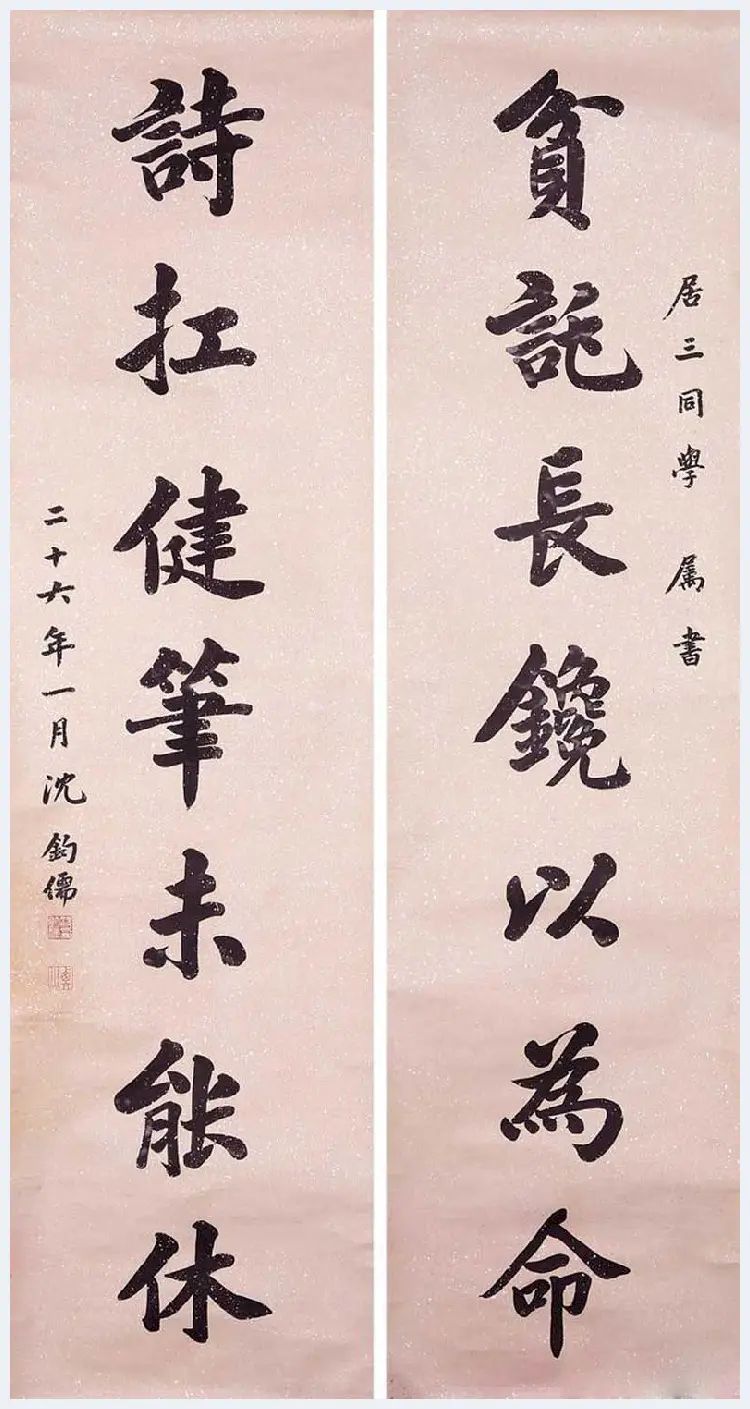 居三同學 属書
貧託長鑱以為命
詩扛健筆未能休
二十六年一月沈鈞儒